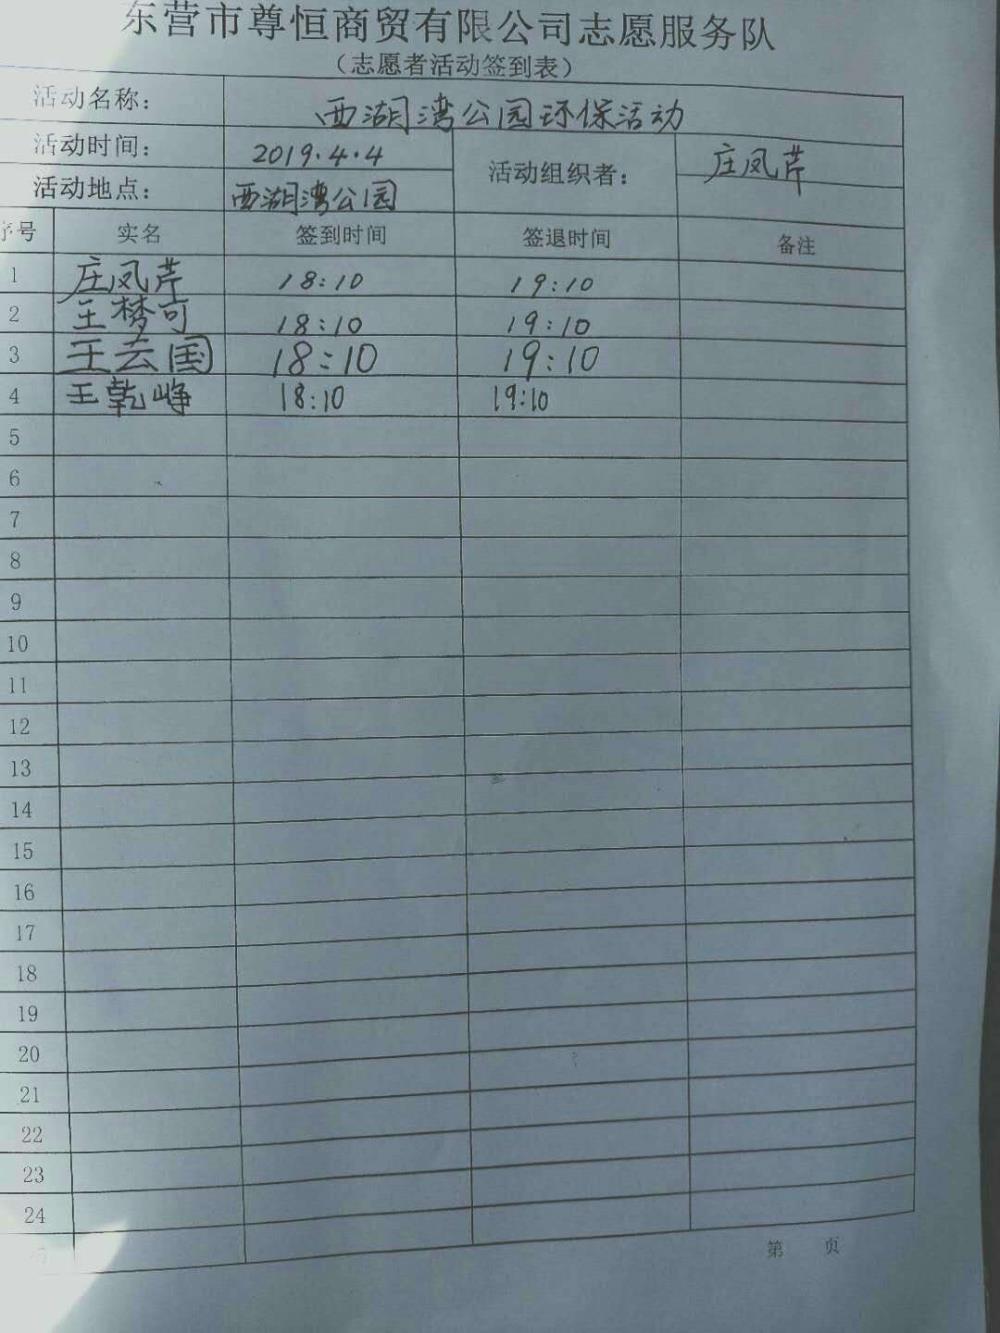 东营市尊恒商贸有限公司志愿服务队
（志愿者活动签到表）
活动名称： 西湖湾公园环保活动
活动时间： 2019.4.4 活动组织者： 庄凤芹
活动地点： 西湖湾公园
序号 实名 签到时间 签退时间 备注
1 庄凤芹 18:10 19:10
2 王梦可 18:10 19:10
3 王云国 18:10 19:10
4 王乾峥 18:10 19:10
5
6
7
8
9
10
11
12
13
14
15
16
17
18
19
20
21
22
23
24
第 页